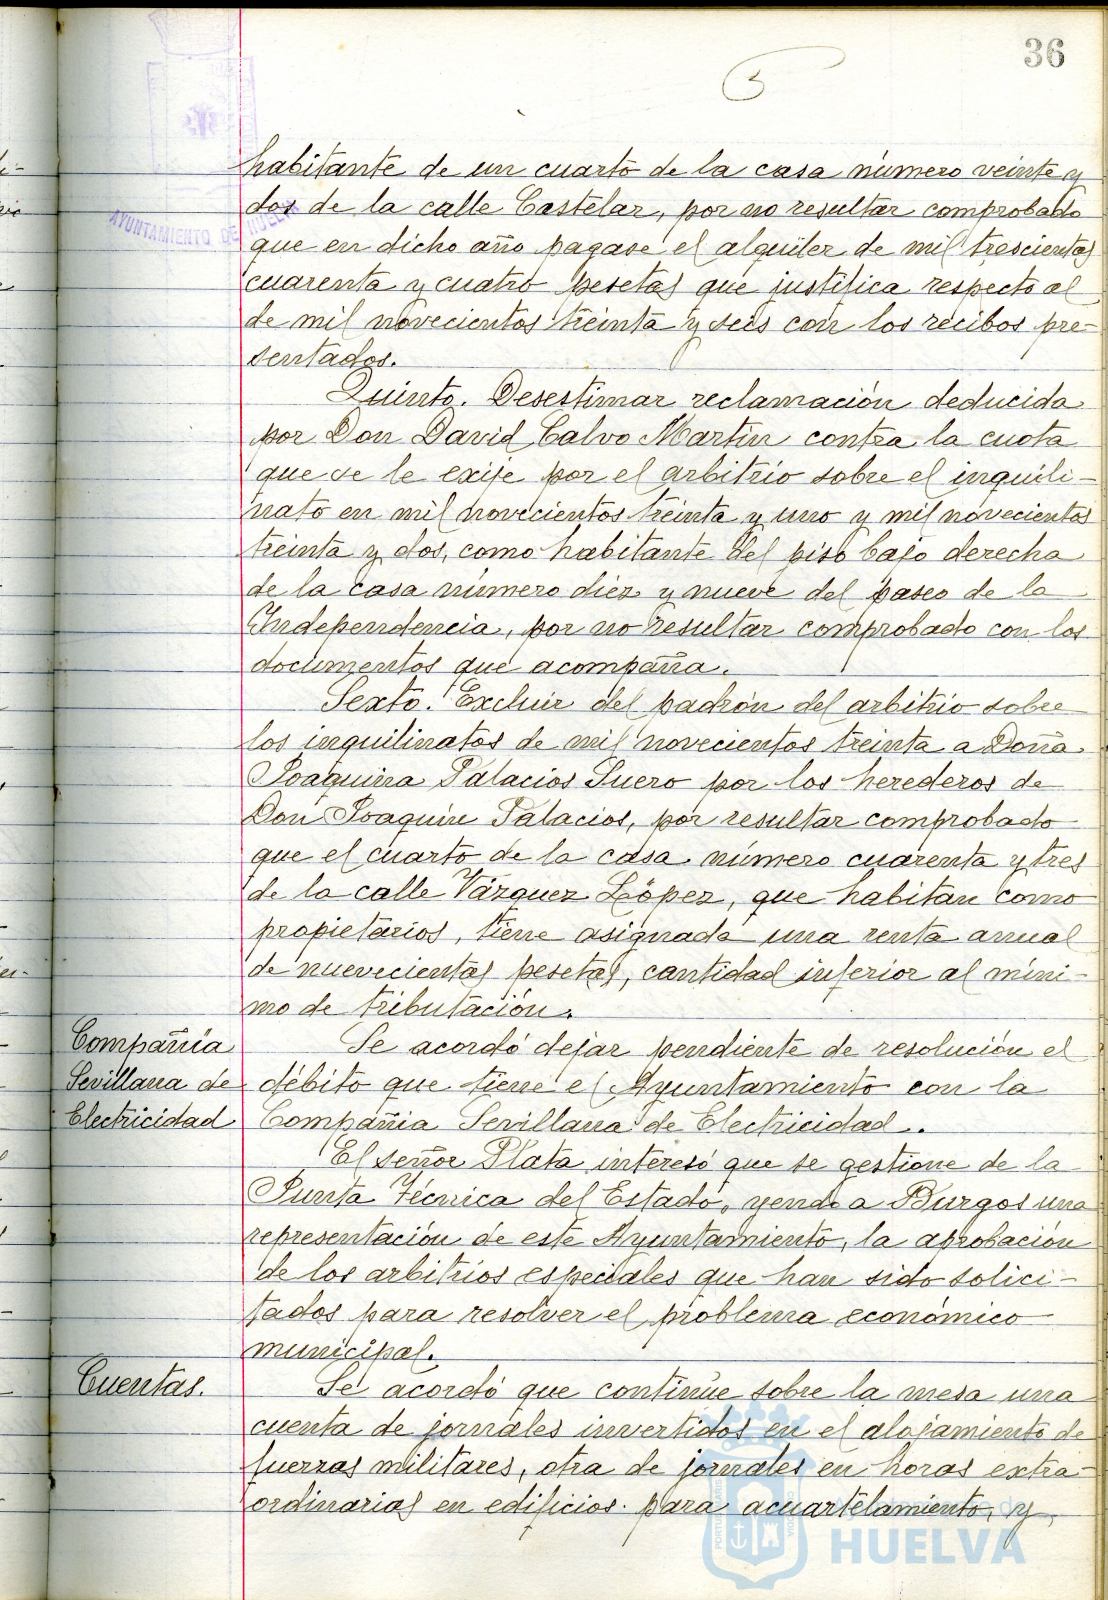 36
AYUNTAMIENTO DE HUELVA
habitante de un cuarto de la casa número veinte y
dos de la calle Castelar, por no resultar comprobado
que en dicho año pagase el alquiler de mil trescientas
cuarenta y cuatro pesetas que justifica respecto al
de mil novecientos treinta y seis con los recibos pre-
sentados.
Quinto. Desestimar reclamación deducida
por Don David Calvo Martin contra la cuota
que se le exije por el arbitrio sobre el inquili-
nato en mil novecientos treinta y uno y mil novecientos
treinta y dos, como habitante del piso bajo derecha
de la casa número diez y nueve del paseo de la
Independencia, por no resultar comprobado con los
documentos que acompaña.
Sexto. Excluir del padrón del arbitrio sobre
los inquilinatos de mil novecientos treinta a Doña
Joaquina Palacios Suero por los herederos de
Don Joaquin Palacios, por resultar comprobado
que el cuarto de la casa número cuarenta y tres
de la calle Vázquez López, que habitan como
propietarios, tiene asignada una renta anual
de nuevecientas pesetas, cantidad inferior al míni-
mo de tributación.
Compañía
Sevillana de
Electricidad
Se acordó dejar pendiente de resolución el
débito que tiene el Ayuntamiento con la
Compañia Sevillana de Electricidad.
El señor Plata interesó que se gestione de la
Junta Técnica del Estado, yendo a Burgos una
representación de este Ayuntamiento, la aprobación
de los arbitrios especiales que han sido solici-
tados para resolver el problema económico
municipal.
Cuentas.
Se acordó que continúe sobre la mesa una
cuenta de jornales invertidos en el alojamiento de
fuerzas militares, otra de jornales en horas extra-
ordinarias en edificios para acuartelamiento, y
HUELVA